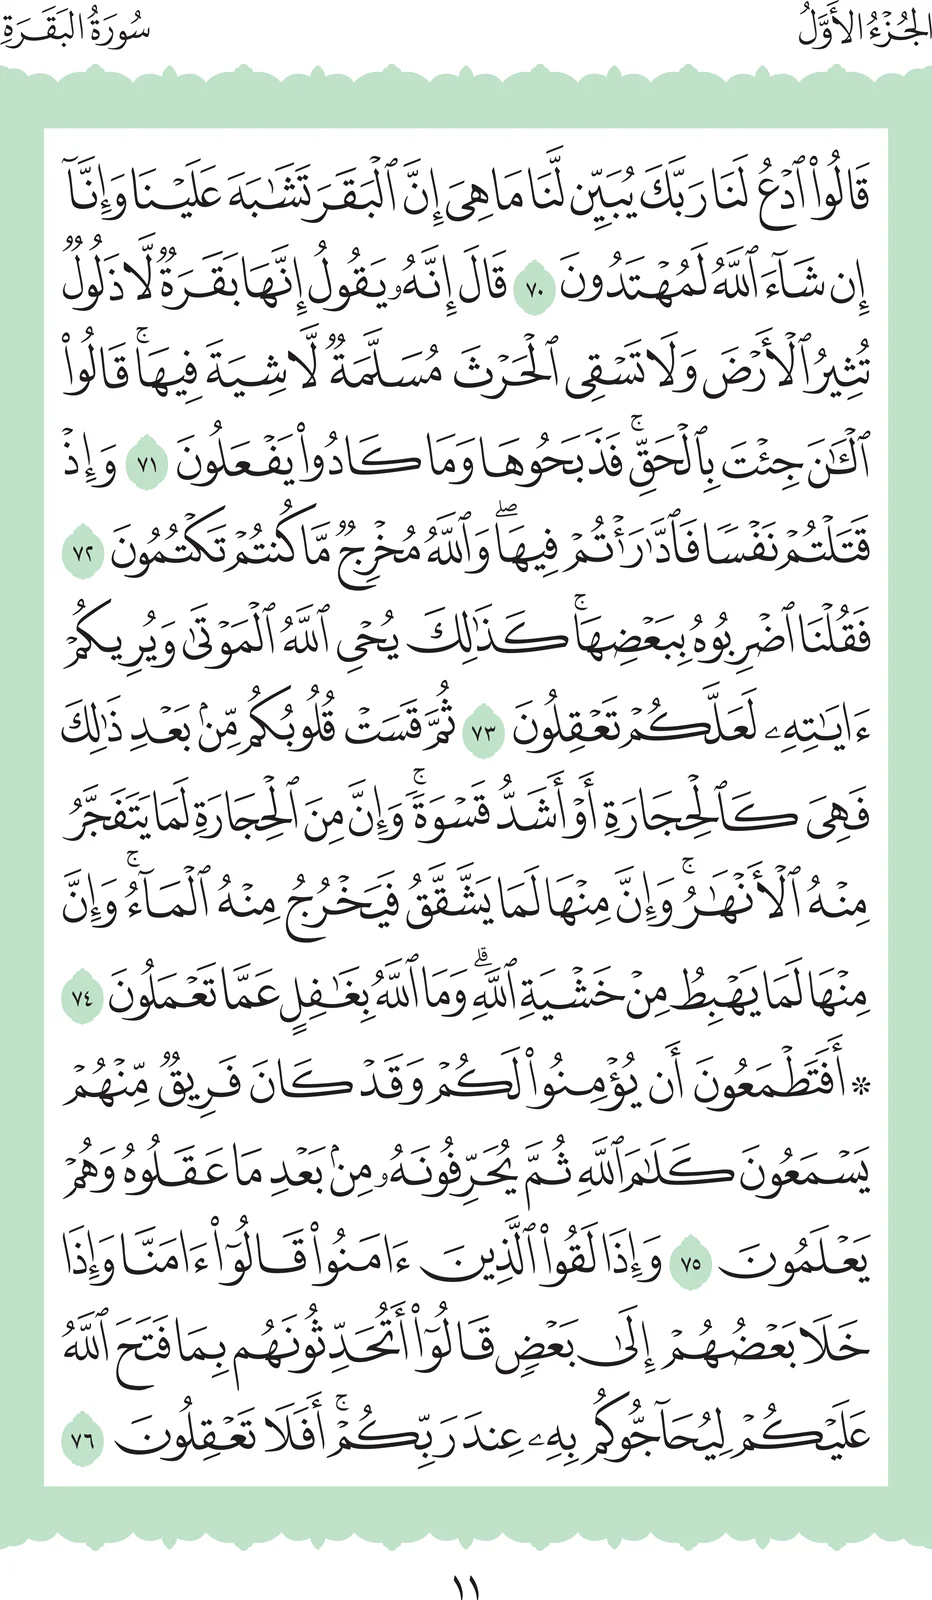 الجُزْءُ الأَوَّلُ
سُورَةُ البَقَرَةِ
قَالُواْ ٱدۡعُ لَنَا رَبَّكَ يُبَيِّن لَّنَا مَا هِيَ إِنَّ ٱلۡبَقَرَ تَشَٰبَهَ عَلَيۡنَا وَإِنَّآ
إِن شَآءَ ٱللَّهُ لَمُهۡتَدُونَ ٧٠ قَالَ إِنَّهُۥ يَقُولُ إِنَّهَا بَقَرَةٞ لَّا ذَلُولٞ
تُثِيرُ ٱلۡأَرۡضَ وَلَا تَسۡقِي ٱلۡحَرۡثَ مُسَلَّمَةٞ لَّا شِيَةَ فِيهَاۚ قَالُواْ
ٱلۡـَٰٔنَ جِئۡتَ بِٱلۡحَقِّۚ فَذَبَحُوهَا وَمَا كَادُواْ يَفۡعَلُونَ ٧١ وَإِذۡ
قَتَلۡتُمۡ نَفۡسٗا فَٱدَّٰرَٰٔتُمۡ فِيهَاۖ وَٱللَّهُ مُخۡرِجٞ مَّا كُنتُمۡ تَكۡتُمُونَ ٧٢
فَقُلۡنَا ٱضۡرِبُوهُ بِبَعۡضِهَاۚ كَذَٰلِكَ يُحۡيِ ٱللَّهُ ٱلۡمَوۡتَىٰ وَيُرِيكُمۡ
ءَايَٰتِهِۦ لَعَلَّكُمۡ تَعۡقِلُونَ ٧٣ ثُمَّ قَسَتۡ قُلُوبُكُم مِّنۢ بَعۡدِ ذَٰلِكَ
فَهِيَ كَٱلۡحِجَارَةِ أَوۡ أَشَدُّ قَسۡوَةٗۚ وَإِنَّ مِنَ ٱلۡحِجَارَةِ لَمَا يَتَفَجَّرُ
مِنۡهُ ٱلۡأَنۡهَٰرُۚ وَإِنَّ مِنۡهَا لَمَا يَشَّقَّقُ فَيَخۡرُجُ مِنۡهُ ٱلۡمَآءُۚ وَإِنَّ
مِنۡهَا لَمَا يَهۡبِطُ مِنۡ خَشۡيَةِ ٱللَّهِۗ وَمَا ٱللَّهُ بِغَٰفِلٍ عَمَّا تَعۡمَلُونَ ٧٤
۞ أَفَتَطۡمَعُونَ أَن يُؤۡمِنُواْ لَكُمۡ وَقَدۡ كَانَ فَرِيقٞ مِّنۡهُمۡ
يَسۡمَعُونَ كَلَٰمَ ٱللَّهِ ثُمَّ يُحَرِّفُونَهُۥ مِنۢ بَعۡدِ مَا عَقَلُوهُ وَهُمۡ
يَعۡلَمُونَ ٧٥ وَإِذَا لَقُواْ ٱلَّذِينَ ءَامَنُواْ قَالُوٓاْ ءَامَنَّا وَإِذَا
خَلَا بَعۡضُهُمۡ إِلَىٰ بَعۡضٖ قَالُوٓاْ أَتُحَدِّثُونَهُم بِمَا فَتَحَ ٱللَّهُ
عَلَيۡكُمۡ لِيُحَآجُّوكُم بِهِۦ عِندَ رَبِّكُمۡۚ أَفَلَا تَعۡقِلُونَ ٧٦
١١